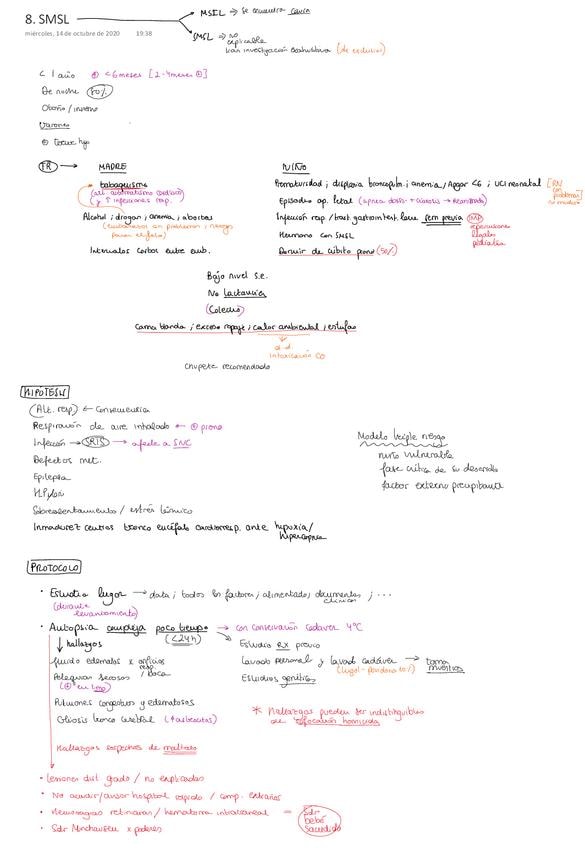 8. SMSL
MSEL → se encuentra causa
miércoles, 14 de octubre de 2020 19:38
SMSL → no explicable
tras investigación exhaustiva (de exclusión)
< 1 año ⊕ < 6 meses [2-4 meses ⊕]
De noche 80%
Otoño / invierno
Varones
⊕ tercer hijo
FR → MADRE
NIÑO
tabaquismo
(alt. automatismo cardíaco)
y ↑ infecciones resp.)
Prematuridad ; displasia broncopulm. ; anemia / Apgar <6 ; UCI neonatal [RN con problemas no maduro
Episodio ap. letal (apnea + cianosis → reanimada)
Alcohol ; drogas ; anemia ; abortos
Infección resp / trast gastrointest. leve sem previa IMP repercusiones legales pediatría
Hermano con SMSL
Intervalos cortos entre emb.
Dormir de cúbito prono (50%)
Bajo nivel s.e.
No lactancia
(Colecho)
Cama blanda ; exceso ropaje ; calor ambiental ; estufas
d.d.
intoxicación CO
Chupete recomendado
HIPÓTESIS
(Alt. resp) ← consecuencia
Respiración de aire inhalado ← ⊕ prono
Infección → SRIS → afecta a SNC
Defectos met.
Epilepsia
H. Pylori
Sobrecalentamiento / estrés térmico
Inmadurez centros tronco encéfalo cardiorresp. ante hipoxia / hipercapnia
Modelo triple riesgo
niño vulnerable
fase crítica de su desarrollo
factor externo precipitante
PROTOCOLO
• Estudio lugar → data ; todos los factores ; alimentados ; documentos clínicos ; ...
(durante levantamiento)
• Autopsia compleja poco tiempo → con conservación cadáver 4°C
(<24h)
↓ hallazgos
Estudio RX previo
fluido edematos x orificios resp. / boca
Lavado personal y lavado cadáver → toma muestras
(lugol - povidona 10%)
Petequias serosas
(⊕ en timo)
Estudios genéticos
Pulmones congestivos y edematosos
Gliosis tronco cerebral (↑ astrocitos)
* Hallazgos pueden ser indistinguibles de sofocación homicida
Hallazgos sospechas de maltrato
• Lesiones dist grado / no explicadas
• No acudir / avisar hospital rápido / comp. extraños
• Hemorragias retinianas / hematoma intracraneal = Sdr bebé sacudido
• Sdr Münchausen x poderes